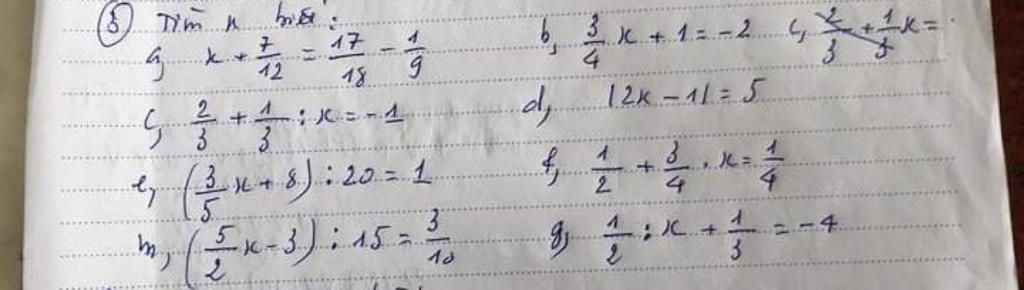 5 Tìm x biết:
a, x + 7/12 = 17/18 - 1/9 b, 3/4 x + 1 = -2
c, 2/3 + 1/3 : x = -1 d, |2x - 1| = 5
e, (3/5 x + 8) : 20 = 1 f, 1/2 + 3/4 . x = 1/4
m, (5/2 x - 3) : 15 = 3/10 g, 1/2 : x + 1/3 = -4